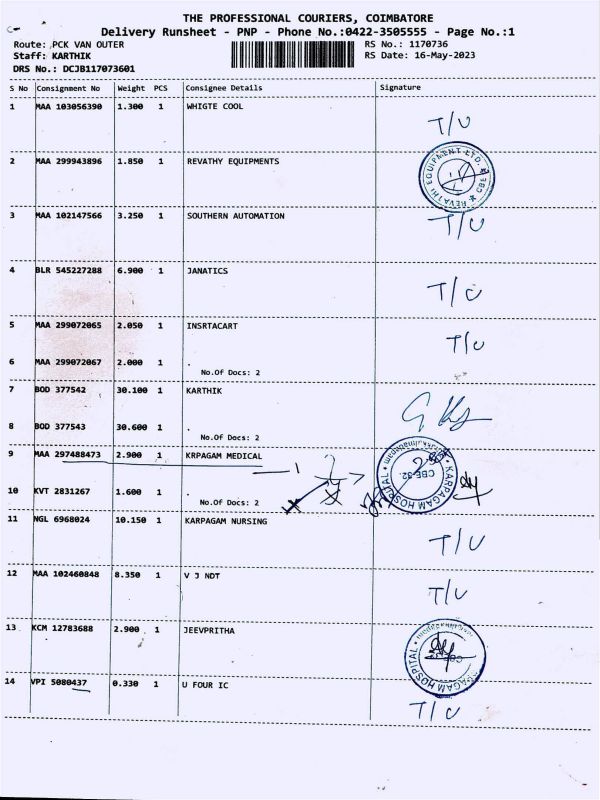 THE PROFESSIONAL COURIERS, COIMBATORE
Delivery Runsheet - PNP - Phone No.:0422-3505555 - Page No.:1
Route: PCK VAN OUTER RS No.: 1170736
Staff: KARTHIK RS Date: 16-May-2023
DRS No.: DCJB117073601
S No Consignment No Weight PCS Consignee Details Signature
1 MAA 103056390 1.300 1 WHIGTE COOL T/U
2 MAA 299943896 1.850 1 REVATHY EQUIPMENTS
REVATHI EQUIPMENT LTD. ★ CBE ★
3 MAA 102147566 3.250 1 SOUTHERN AUTOMATION T/U
4 BLR 545227288 6.900 1 JANATICS T/U
5 MAA 299072065 2.050 1 INSRTACART T/U
6 MAA 299072067 2.000 1 .
No.Of Docs: 2
7 BOD 377542 30.100 1 KARTHIK
8 BOD 377543 30.600 1 .
No.Of Docs: 2
9 MAA 297488473 2.900 1 KRPAGAM MEDICAL
KARPAGAM HOSPITAL • CBE-32.
10 KVT 2831267 1.600 1 .
No.Of Docs: 2
11 NGL 6968024 10.150 1 KARPAGAM NURSING T/U
12 MAA 102460848 8.350 1 V J NDT T/U
13 KCM 12783688 2.900 1 JEEVPRITHA
KARPAGAM HOSPITAL •
14 VPI 5080437 0.330 1 U FOUR IC T/U